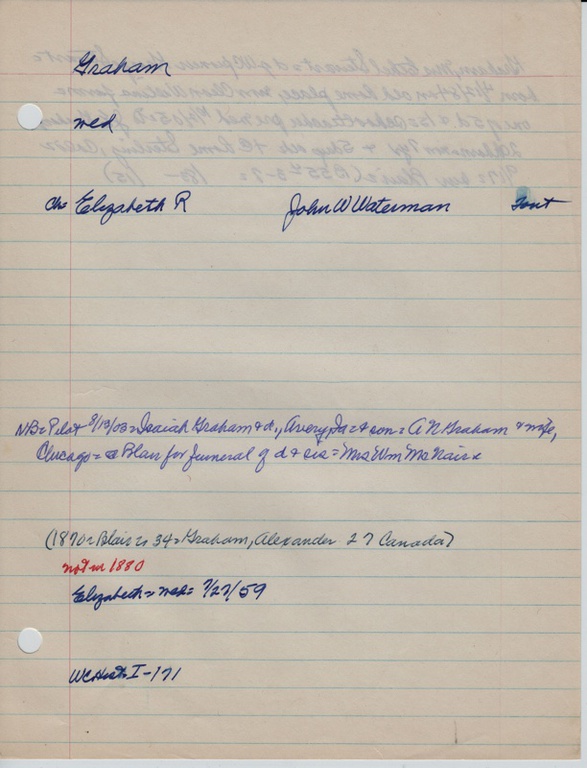 Graham
med
Ch= Elizabeth R John W Waterman Font
NB=Pilot 8/13/03=Isaiah Graham & d., Avery, Ia= & son= A N Graham & wife,
Chicago= Blair for funeral of d & sis= Mrs Wm McNair
(1870=Blair= 34=Graham, Alexander 27 Canada)
not in 1880
Elizabeth= med= 7/27/59
WCHist I-171